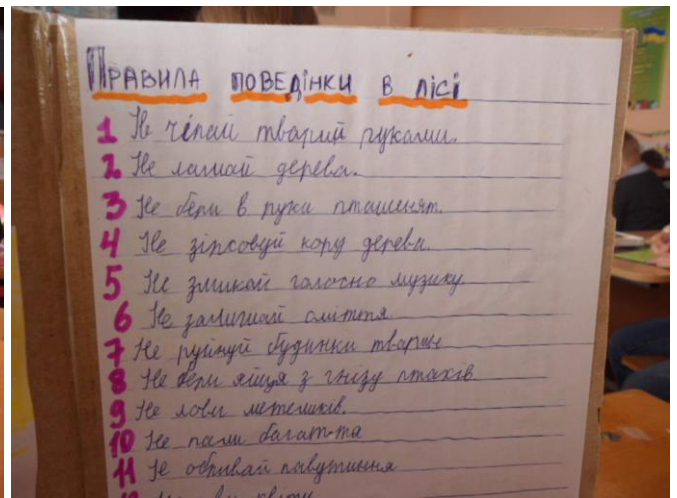 Правила поведінки в лісі
1 Не чіпай тварин руками.
2 Не ламай дерева.
3 Не бери в руки пташенят.
4 Не зіпсовуй кору дерева.
5 Не змикай голосно музику.
6 Не залишай сміття.
7 Не руйнуй будинки тварин
8 Не бери яйця з гнізу птахів.
9 Не лови метеликів.
10 Не пали багаття
11 Не обривай павутиння